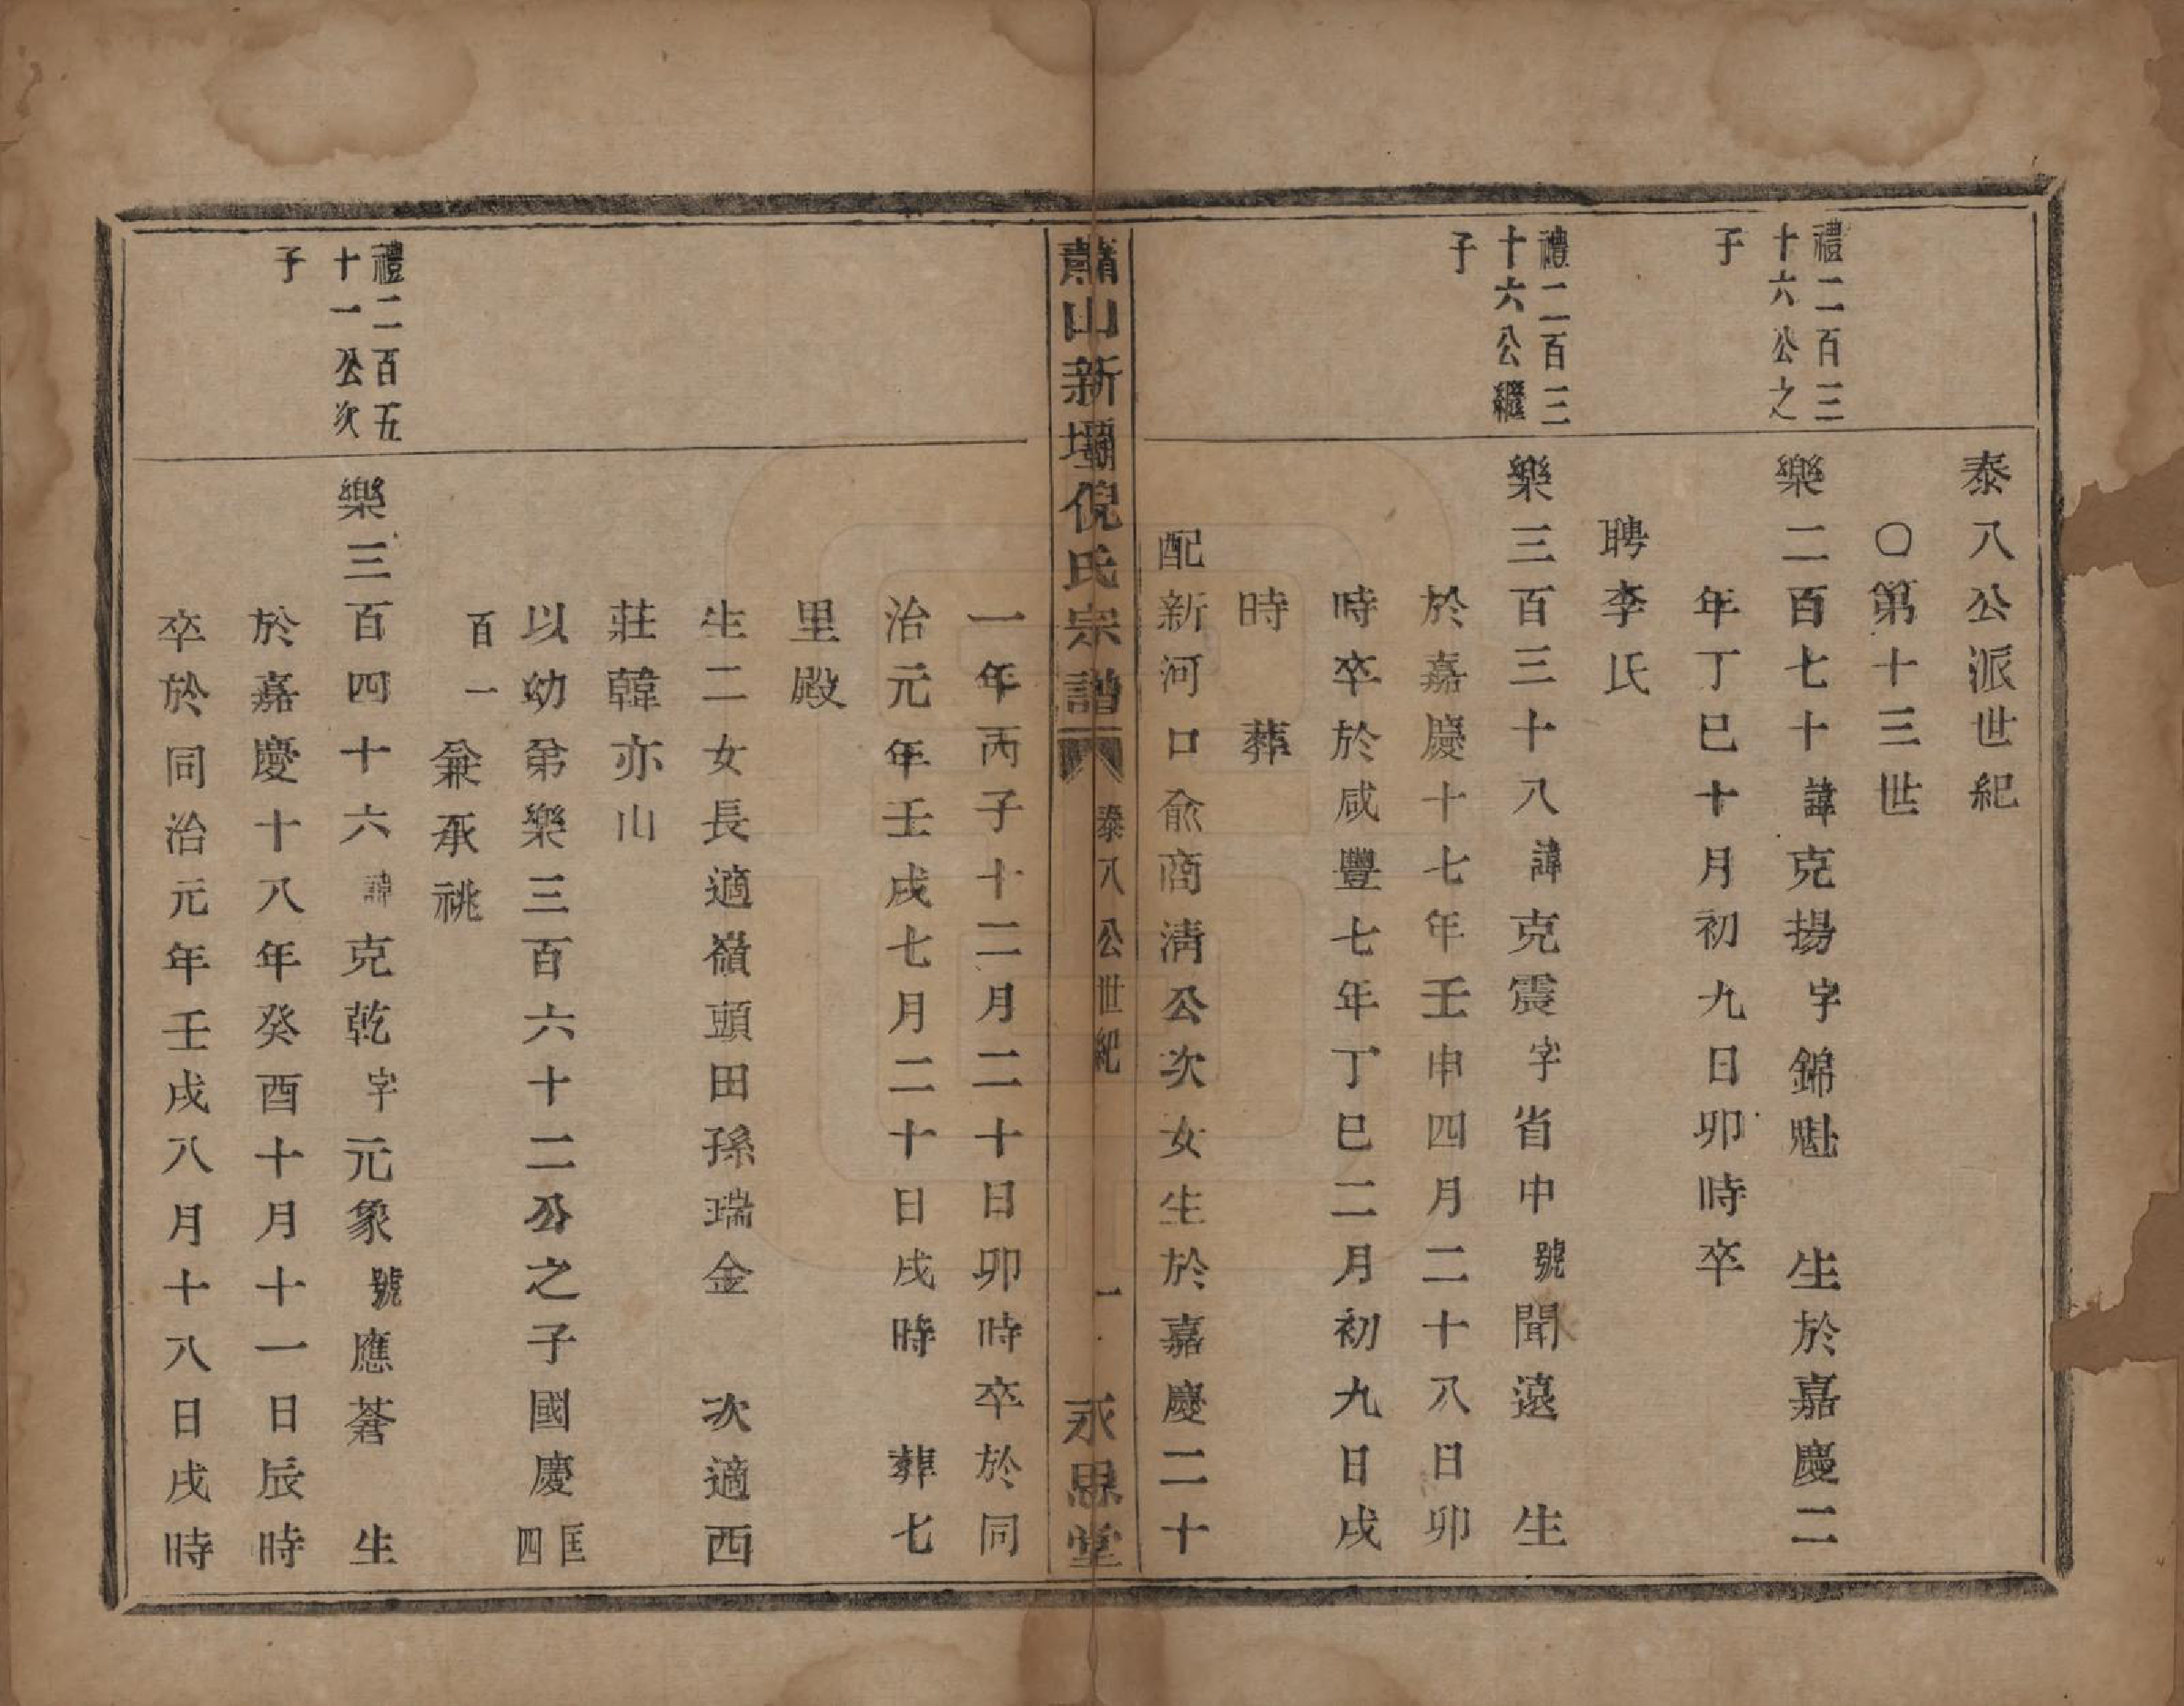 泰八公派世紀
○第十三世
禮二百三
十六公之
子
樂二百七十諱克揚字錦魁　生於嘉慶二
年丁巳十月初九日卯時卒
聘李氏
禮二百三
十六公繼
子
樂三百三十八諱克震字省中號聞遠　生
於嘉慶十七年壬申四月二十八日卯
時卒於咸豐七年丁巳二月初九日戌
時　葬
配新河口兪商淸公次女生於嘉慶二十
蕭山新壩倪氏宗譜　泰八公世紀　一　永思堂
一年丙子十二月二十日卯時卒於同
治元年壬戌七月二十日戌時　葬七
里殿
生二女長適嶺頭田孫瑞金　次適西
莊韓亦山
以幼弟樂三百六十二公之子國慶匡四
百一兼承祧
禮二百五
十一公次
子
樂三百四十六諱克乾字元象號應蒼　生
於嘉慶十八年癸酉十月十一日辰時
卒於同治元年壬戌八月十八日戌時